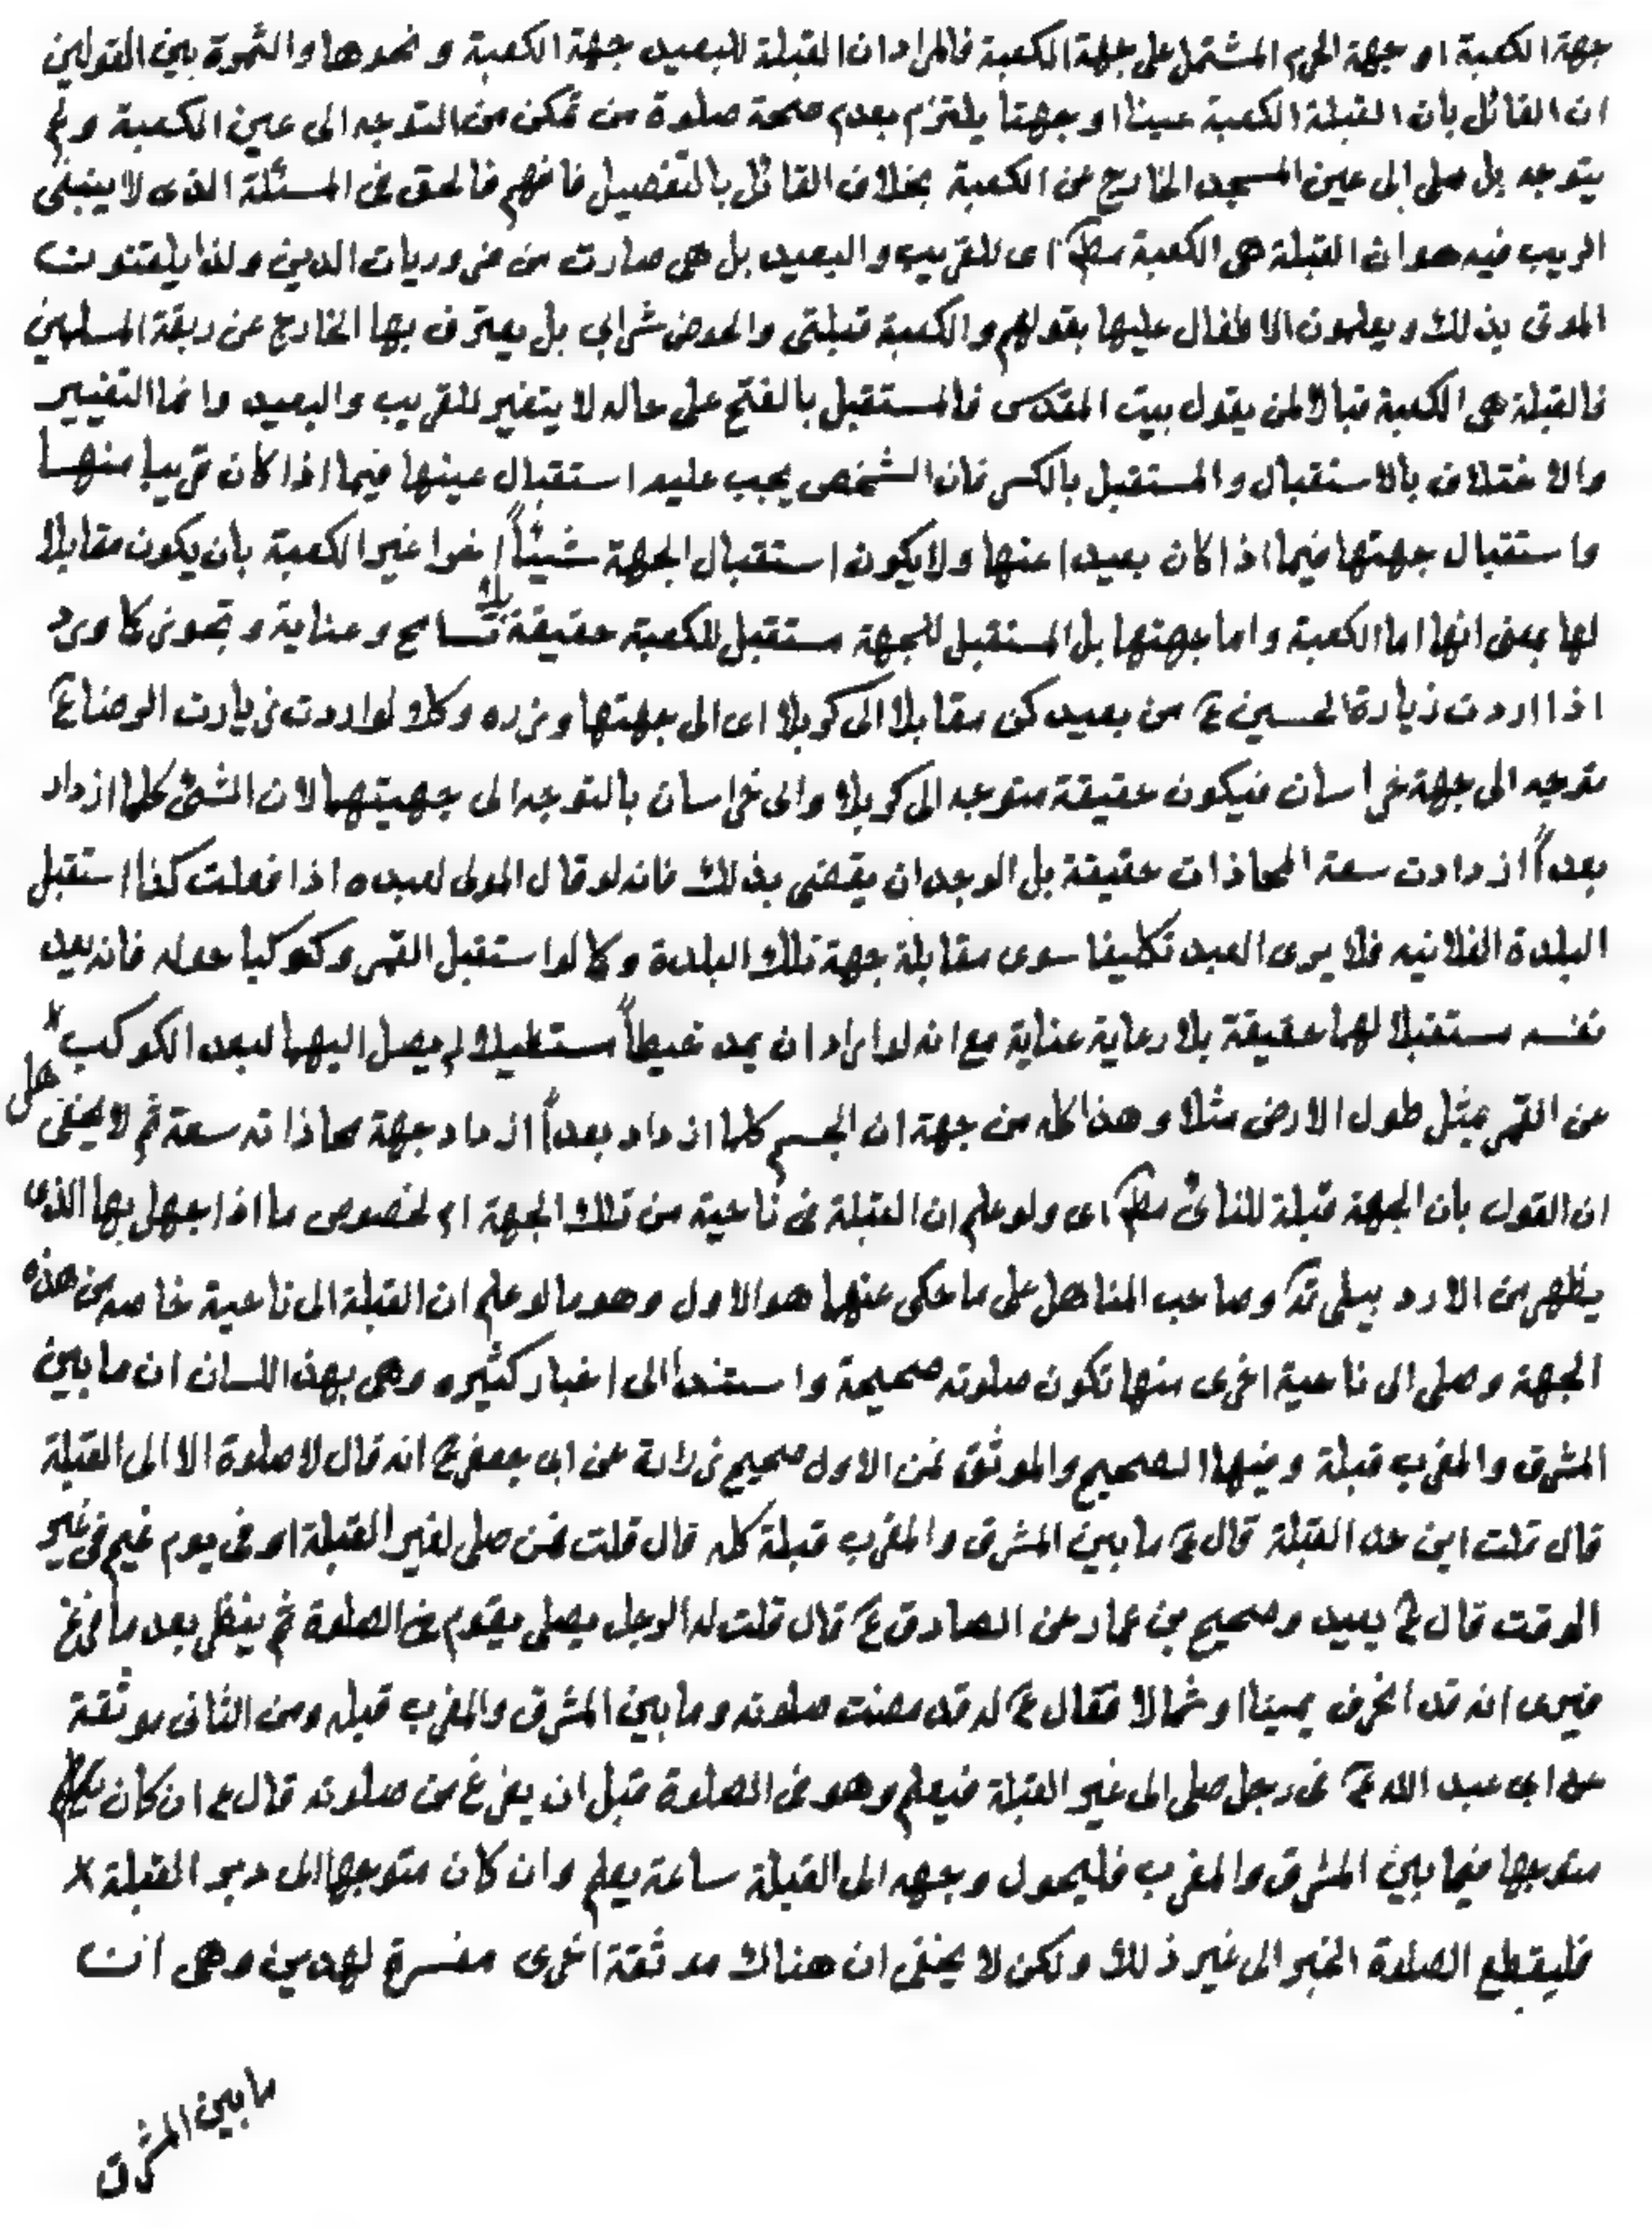 جهة الكعبة او جهة الحرم المشتمل على جهة الكعبة فالمراد ان القبلة للبعيد جهة الكعبة و نحوها والثمرة بين القولين
ان القائل بان القبلة الكعبة عينا او جهتا يلتزم بعدم صحة صلوة من تمكن من التوجه الى عين الكعبة و لم
يتوجه بل صلى الى عين المسجد الخارج عن الكعبة بخلاف القائل بالتفصيل فافهم فالحق فى المسئلة الذى لا ينبغى
الريب فيه هو ان القبلة هى الكعبة مط اى للقريب و البعيد بل هى صارت من ضروريات الدين ولذا يلقنون
الموتى بذلك و يعلمون الاطفال عليها بقولهم و الكعبة قبلتى والحوض شرابى بل يعترف بها الخارج عن ربقة المسلمين
فالقبلة هى الكعبة قبالا لمن يقول بيت المقدس فالمستقبل بالفتح على حاله لا يتغير للقريب والبعيد وانما التغيير
والاختلاف بالاستقبال و المستقبل بالكسر فان الشخص يجب عليه استقبال عينها فيما اذا كان قريبا منها
واستقبال جهتها فيما اذا كان بعيدا عنها ولا يكون استقبال الجهة شيئاً اخرا غير الكعبة بان يكون مقابلا
لها بمعنى انها اما الكعبة و اما جهتها بل المستقبل للجهة مستقبل للكعبة حقيقة بلا تسامح و عناية و تجوز كما ورد
اذا اردت زيارة الحسين ع من بعيد كن مقابلا الى كربلا اى الى جهتها وزره وكك لو اردت زيارت الرضا ع
توجه الى جهة خراسان فيكون حقيقة متوجه الى كربلا والى خراسان بالتوجه الى جهتيهما لان الشئ كلما ازداد
بعداً ازدادت سعة المحاذات حقيقة بل الوجدان يقضى بذلك فانه لو قال المولى لعبده اذا فعلت كذا استقبل
البلدة الفلانيه فلا يرى العبد تكليفا سوى مقابلة جهة تلك البلدة وكما لو استقبل القمر وكوكبا حوله فانه يعد
نفسه مستقبلا لهما حقيقة بلا رعاية عناية مع انه لو اراد ان يمد خيطاً مستطيلا لم يصل اليهما لبعد الكوكب
عن القمر بمثل طول الارض مثلا و هذا كله من جهة ان الجسم كلما ازداد بعداً ازداد جهة محاذاته سعة ثم لا يخفى هل
ان القول بان الجهة قبلة للنائى مط اى ولو علم ان القبلة فى ناحية من تلك الجهة ام لخصوص ما اذا جهل بها الذى
يظهر من الاردبيلى قد و صاحب المناهل على ما حكى عنهما هو الاول وهو ما لو علم ان القبلة الى ناحية خاصه من هذه
الجهة و صلى الى ناحية اخرى منها تكون صلوته صحيحة واستندا الى اخبار كثيره وهى بهذا اللسان ان ما بين
المشرق والمغرب قبلة و فيها الصحيح والموثق فمن الاول صحيح زرارة عن ابى جعفر ع انه قال لا صلوة الا الى القبلة
قال قلت اين حد القبلة قال ع ما بين المشرق و المغرب قبلة كله قال قلت فمن صلى لغير القبلة او فى يوم غيم فى غير
الوقت قال ع يعيد و صحيح بن عمار عن الصادق ع قال قلت له الرجل يصلى يقوم فى الصلوة ثم ينظر بعد ما فرغ
فيرى انه قد انحرف يمينا او شمالا فقال ع له قد مضت صلوته و ما بين المشرق والمغرب قبله ومن الثانى موثقة
عن ابى عبد الله ع فى رجل صلى الى غير القبلة فيعلم وهو فى الصلوة قبل ان يفرغ من صلوته قال ع ان كان
متوجها فيما بين المشرق والمغرب فليحول وجهه الى القبلة ساعة يعلم وان كان متوجها الى دبر القبلة
فليقطع الصلوة الخبر الى غير ذلك ولكن لا يخفى ان هناك موثقة اخرى مفسرة لهذين وهى ان
ما بين المشرق